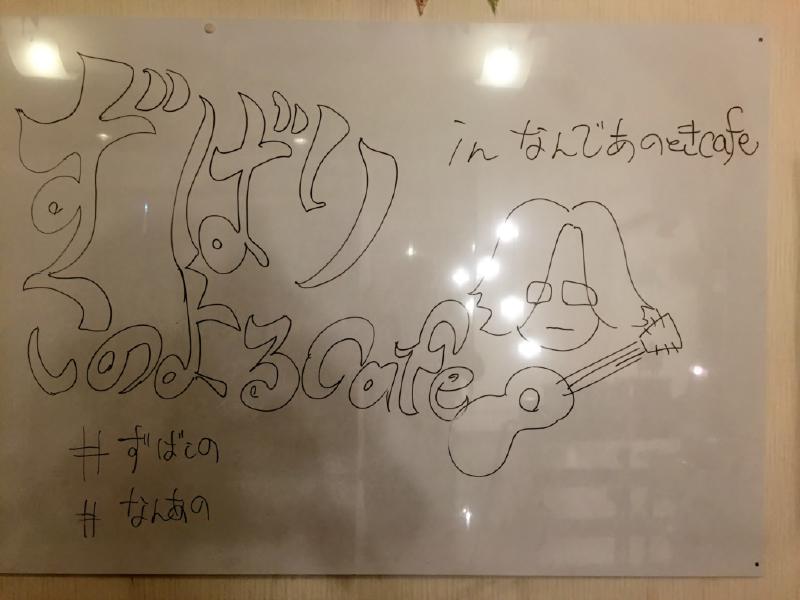 ずばり
in なんであのときcafe
しのよるCafe
#ずばしの
#なんあの